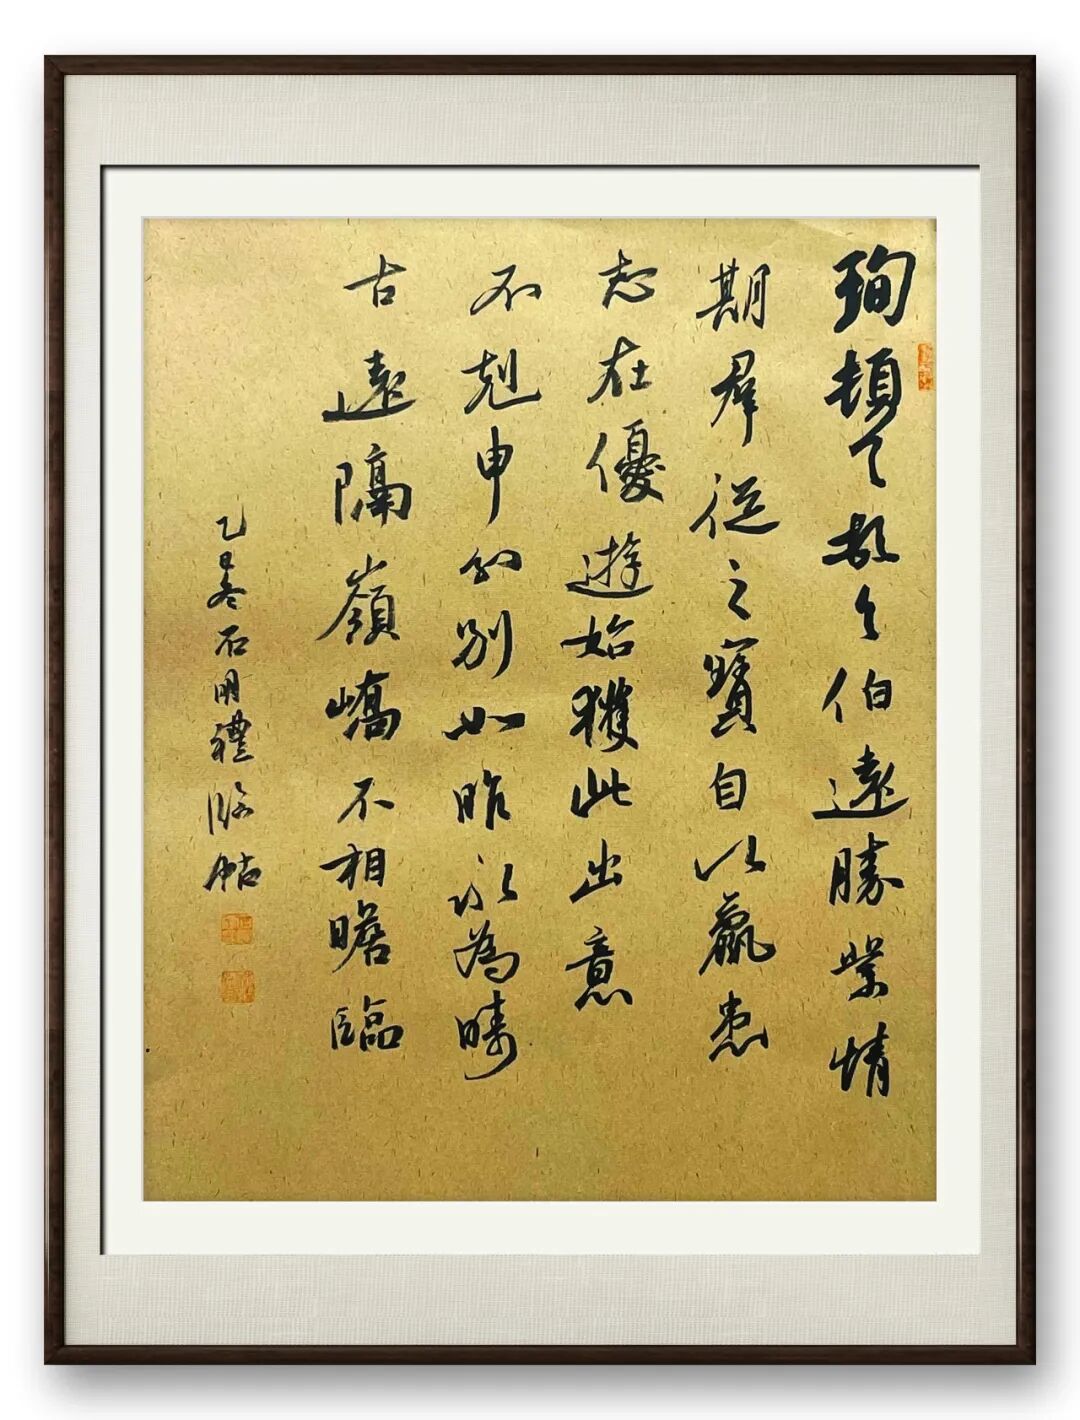 珣頓首頓首伯遠勝業情
期羣從之寶自以羸患
志在優遊始獲此出意
不剋申分別如昨永為疇
古遠隔嶺嶠不相瞻臨
乙巳冬石明禮臨帖